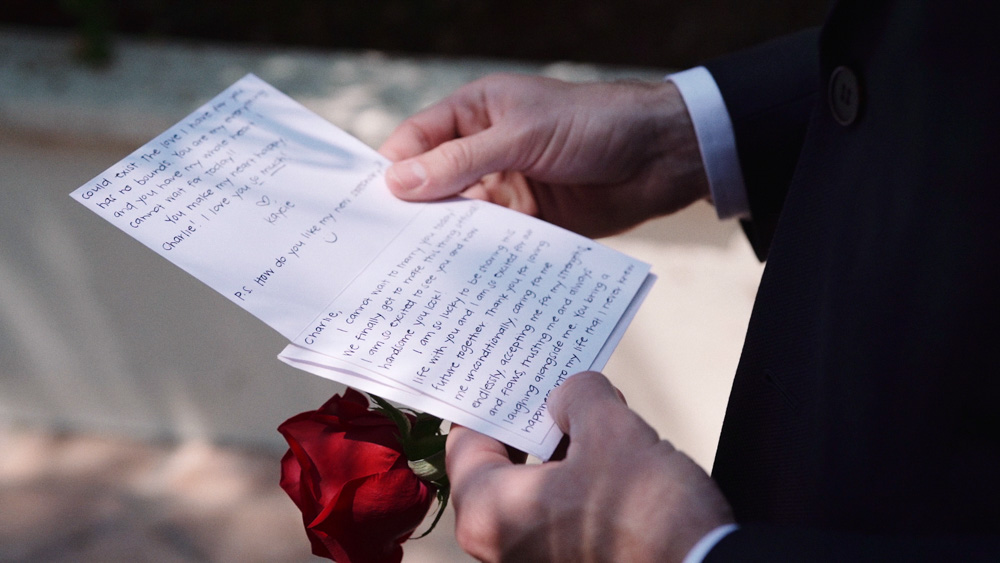 Charlie,
I cannot wait to marry you today!
We finally get to make this thing official
I am so excited to see you and how
handsome you look!
I am so lucky to be sharing this
life with you and I am so excited for our
future together. Thank you for loving
me unconditionally, caring for me
endlessly, accepting me for my strengths
and flaws, trusting me and always
laughing alongside me. You bring a
happiness into my life that I never knew
could exist. The love I have for you
has no bounds. You are my everything
and you have my whole heart. I
cannot wait for today!!
You make my heart happy,
Charlie! I love you so much!
♡
Kaycie
P.S. How do you like my new